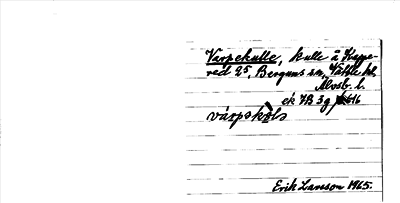 Varpekulle, kulle å Kappe-
red 2⁵, Bergums sn, Vättle hd,
Älvsb. l.
ek 7B 3g
várpekols
Erik Larsson 1965.